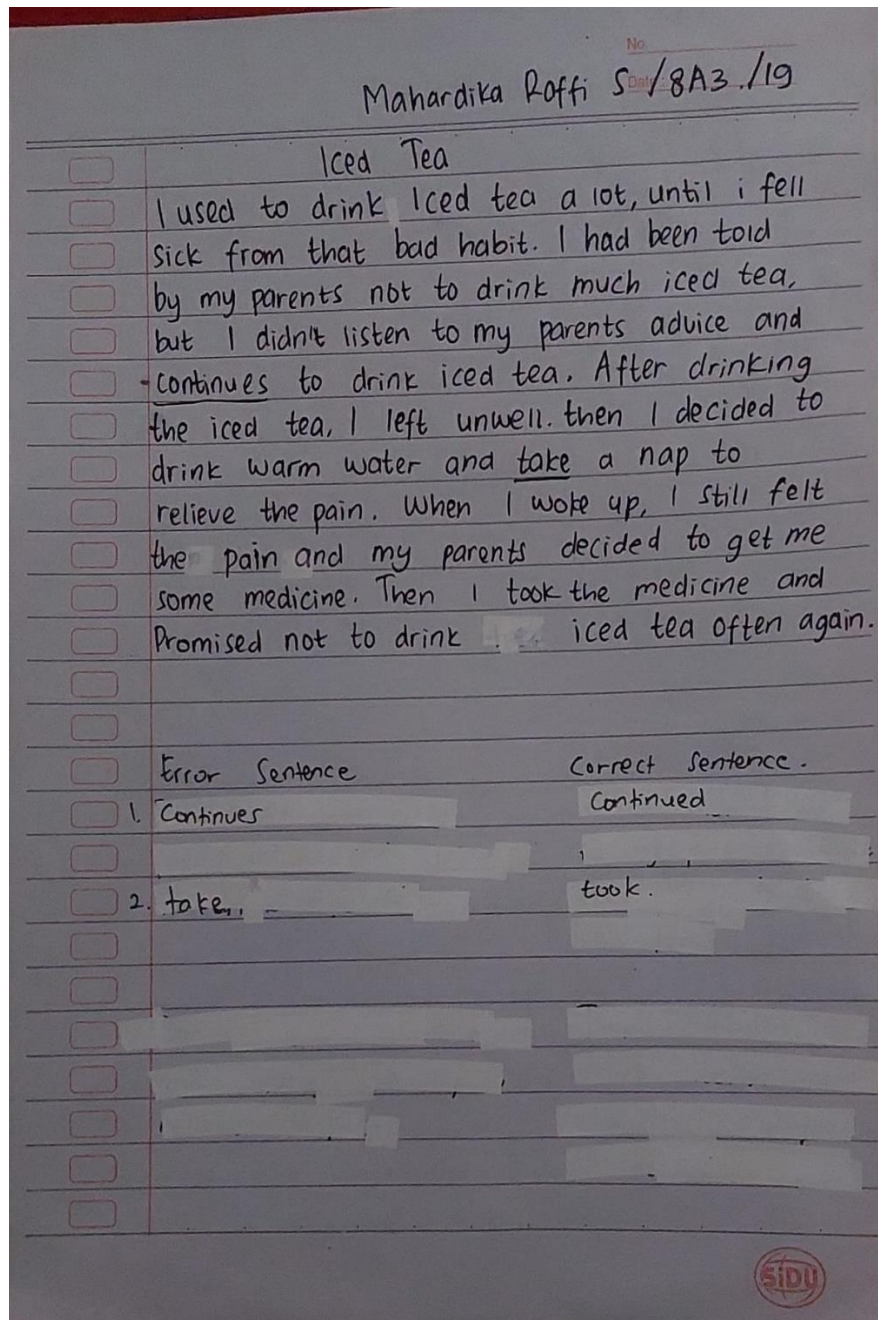 No.
Date:
Mahardika Roffi S /8A3./19
Iced Tea
I used to drink Iced tea a lot, until i fell
sick from that bad habit. I had been told
by my parents not to drink much iced tea,
but I didn't listen to my parents advice and
-continues to drink iced tea. After drinking
the iced tea, I left unwell. then I decided to
drink warm water and take a nap to
relieve the pain. When I woke up, I still felt
the pain and my parents decided to get me
some medicine. Then I took the medicine and
Promised not to drink iced tea often again.
Error Sentence Correct Sentence.
1. Continues Continued
2. take, took.
SIDU